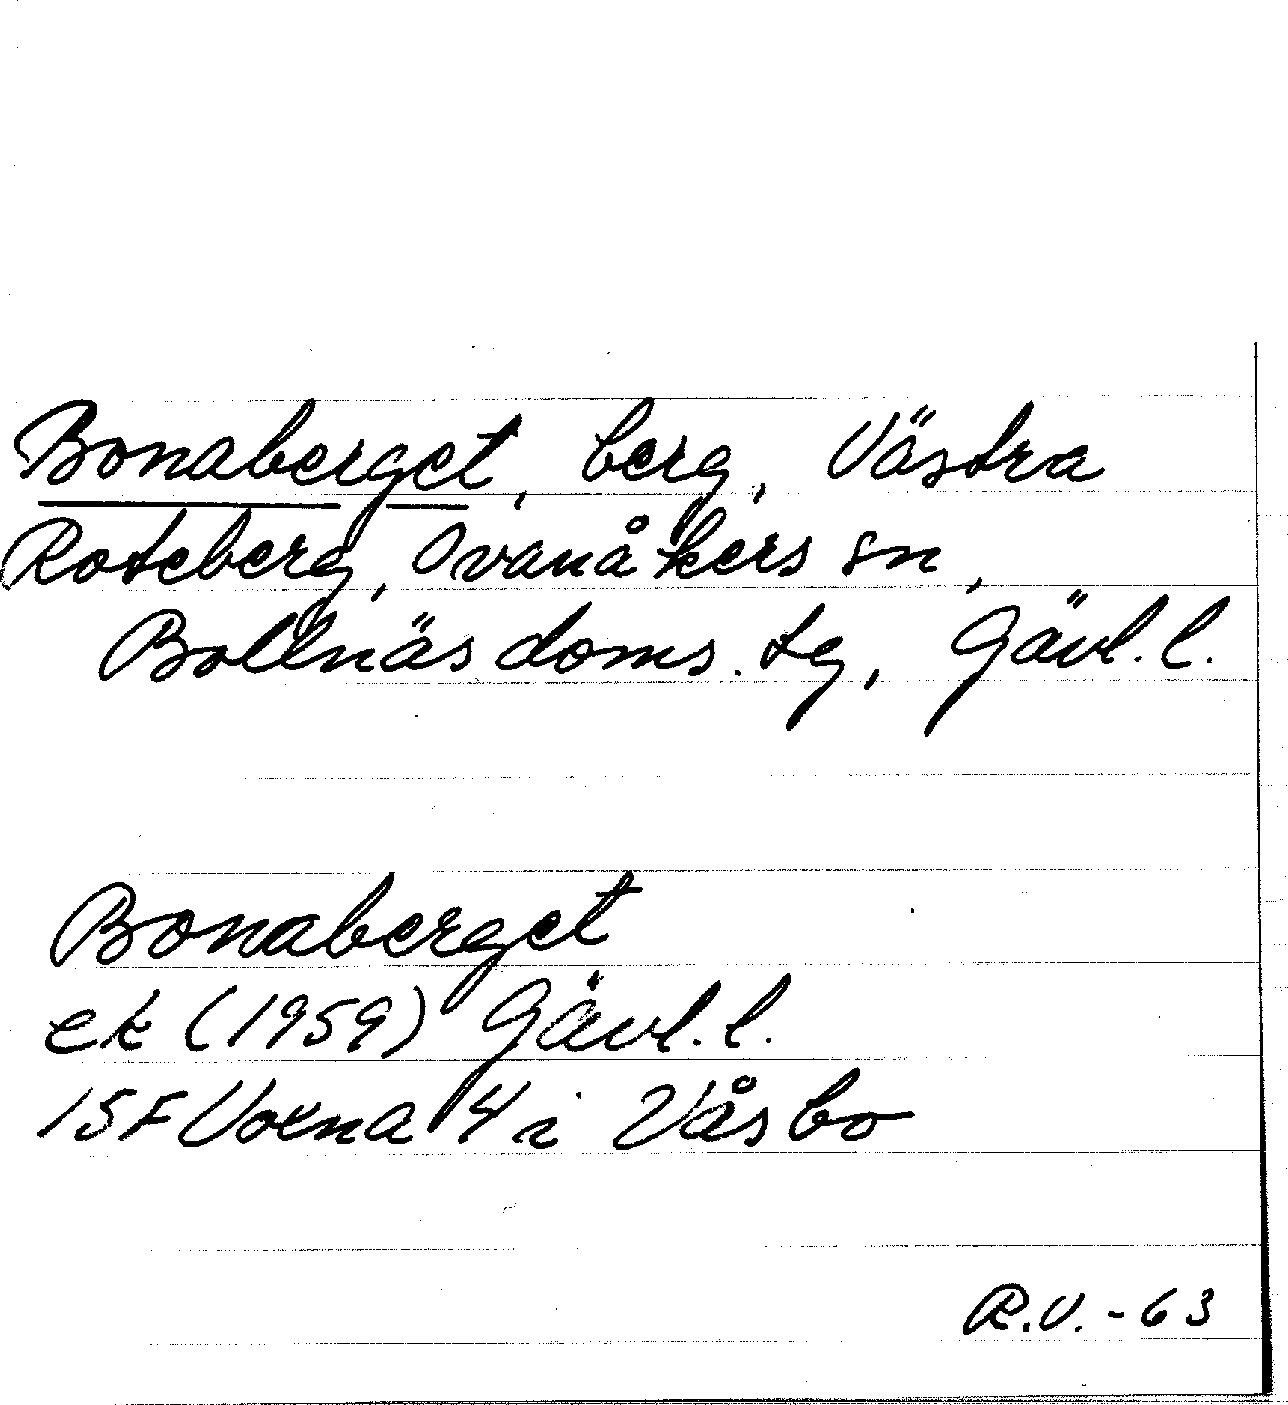 Bonaberget, berg, Västra
Roteberg, Ovanåkers sn,
Bollnäs doms. tg, Gävl. l.
Bonaberget
ek (1959) Gävl. l.
15F Voxna 4 i Våsbo
R.V. - 63